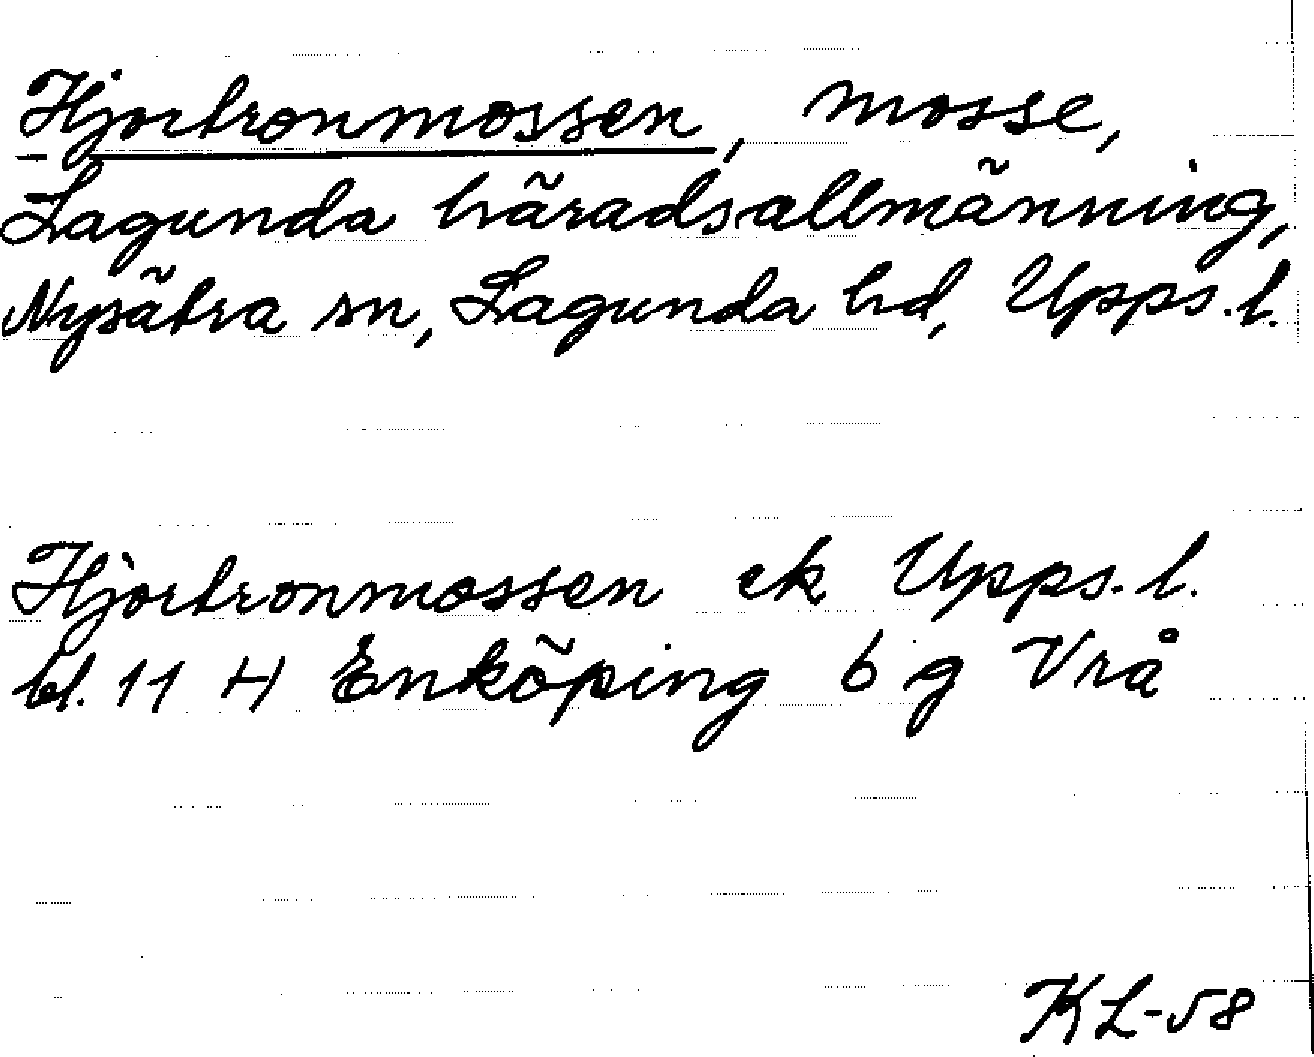 Hjortronmossen, mosse,
Lagunda häradsallmänning,
Nysätra sn, Lagunda hd, Upps.l.
Hjortronmossen ek Upps.l.
bl. 11 H Enköping 6 g Vrå
KL-58